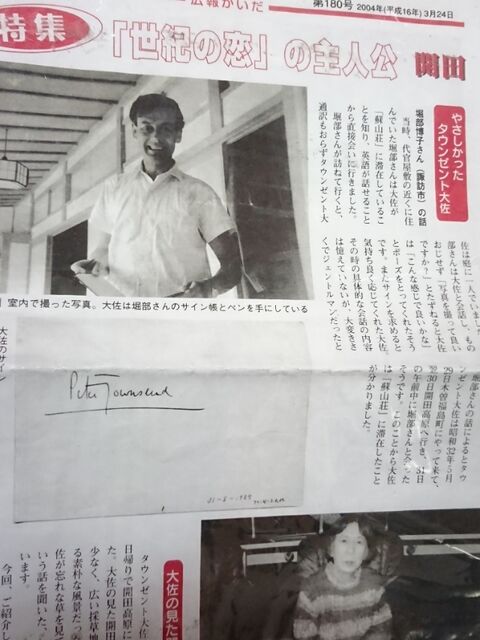 広報かいだ
第180号 2004年(平成16年)3月24日
特集
「世紀の恋」の主人公 開田
やさしかった
タウンゼント大佐
堀部博子さん(諏訪市)の話
当時、代官屋敷の近くに住
んでいた堀部さんは大佐が
「蘇山荘」に滞在しているこ
とを知り、英語が話せること
から直接会いに行きました。
堀部さんが訪ねて行くと、
通訳もおらずタウンゼント大
佐は庭に一人でいました。
部さんは大佐と会話し、もの
おじせず「写真を撮って良い
ですか?」とたずねると大佐
は「こんな感じで良いかな」
とポーズをとってくれたそう
です。またサインを求めると
気持ち良く応じてくれた大佐。
その時の具体的な会話の内容
は憶えていないが、大変きさ
くでジェントルマンだったと
室内で撮った写真。大佐は堀部さんのサイン帳とペンを手にしている
大佐のサイン
Peter Townsend
堀部さんの話によるとタウ
ンゼント大佐は昭和32年5月
29日木曽福島町にやって来て、
翌30日開田高原へ行き、31日
の午前中に堀部さんと会った
そうです。このことから大佐
は「蘇山荘」に滞在したこと
が分かりました。
大佐の見た
タウンゼント大
日帰りで開田高原に
た。大佐の見た開田
少なく、広い採草地
る素朴な風景だっ
佐が忘れな草を見て
いう話を聞いた、
います。
今回、ご紹介し